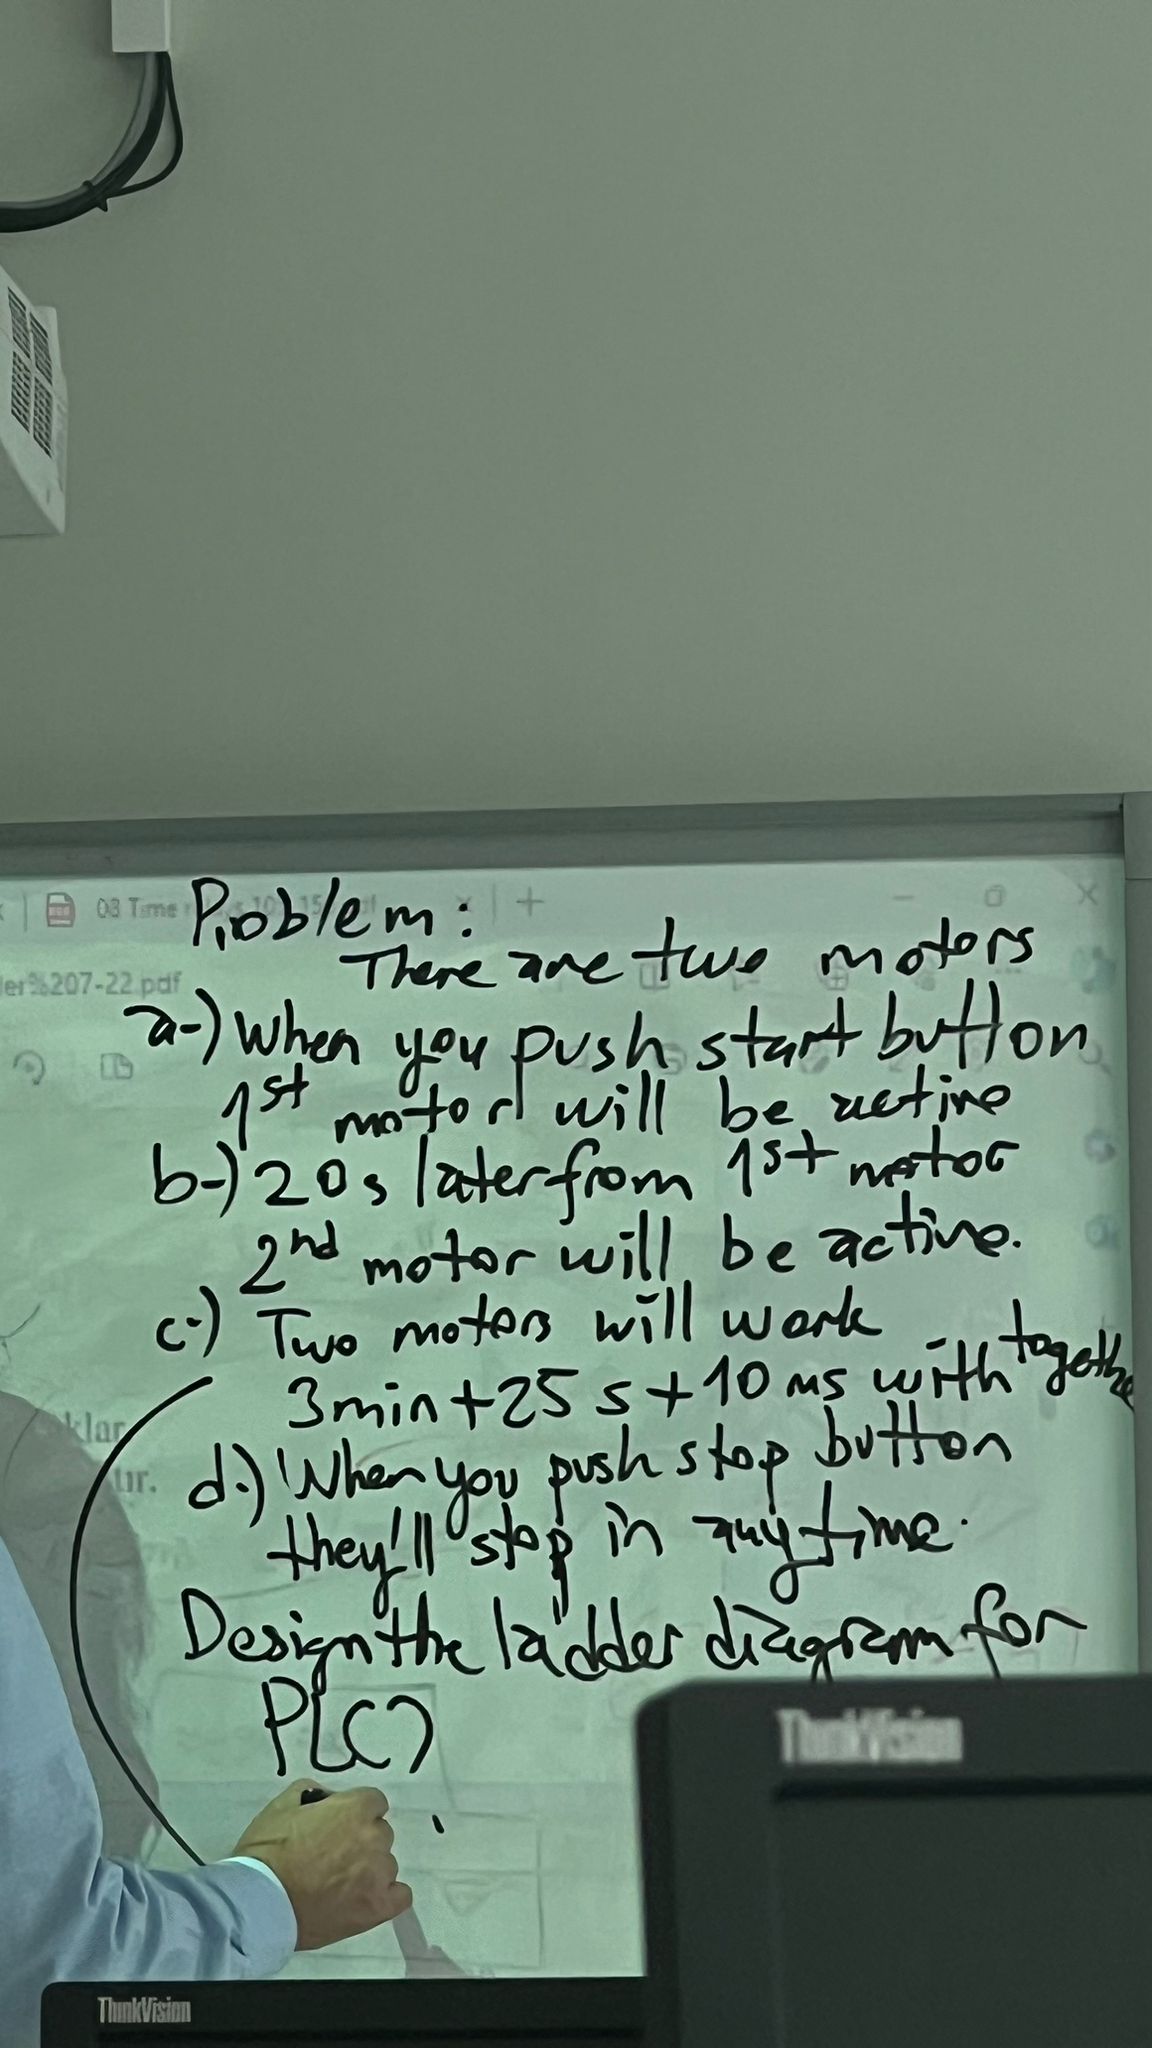 Problem:
08 Time
There are two motors
207-22.pdf
a-) When you push start button
1st motor will be active
b-) 20s later from 1st motor
2nd motor will be active.
c-) Two motors will work
3min+25s+10ms with together
klar
d-) When you push stop button
tır.
they'll stop in any time.
Design the ladder diagram for
PLC?
ThinkVision
ThinkVision